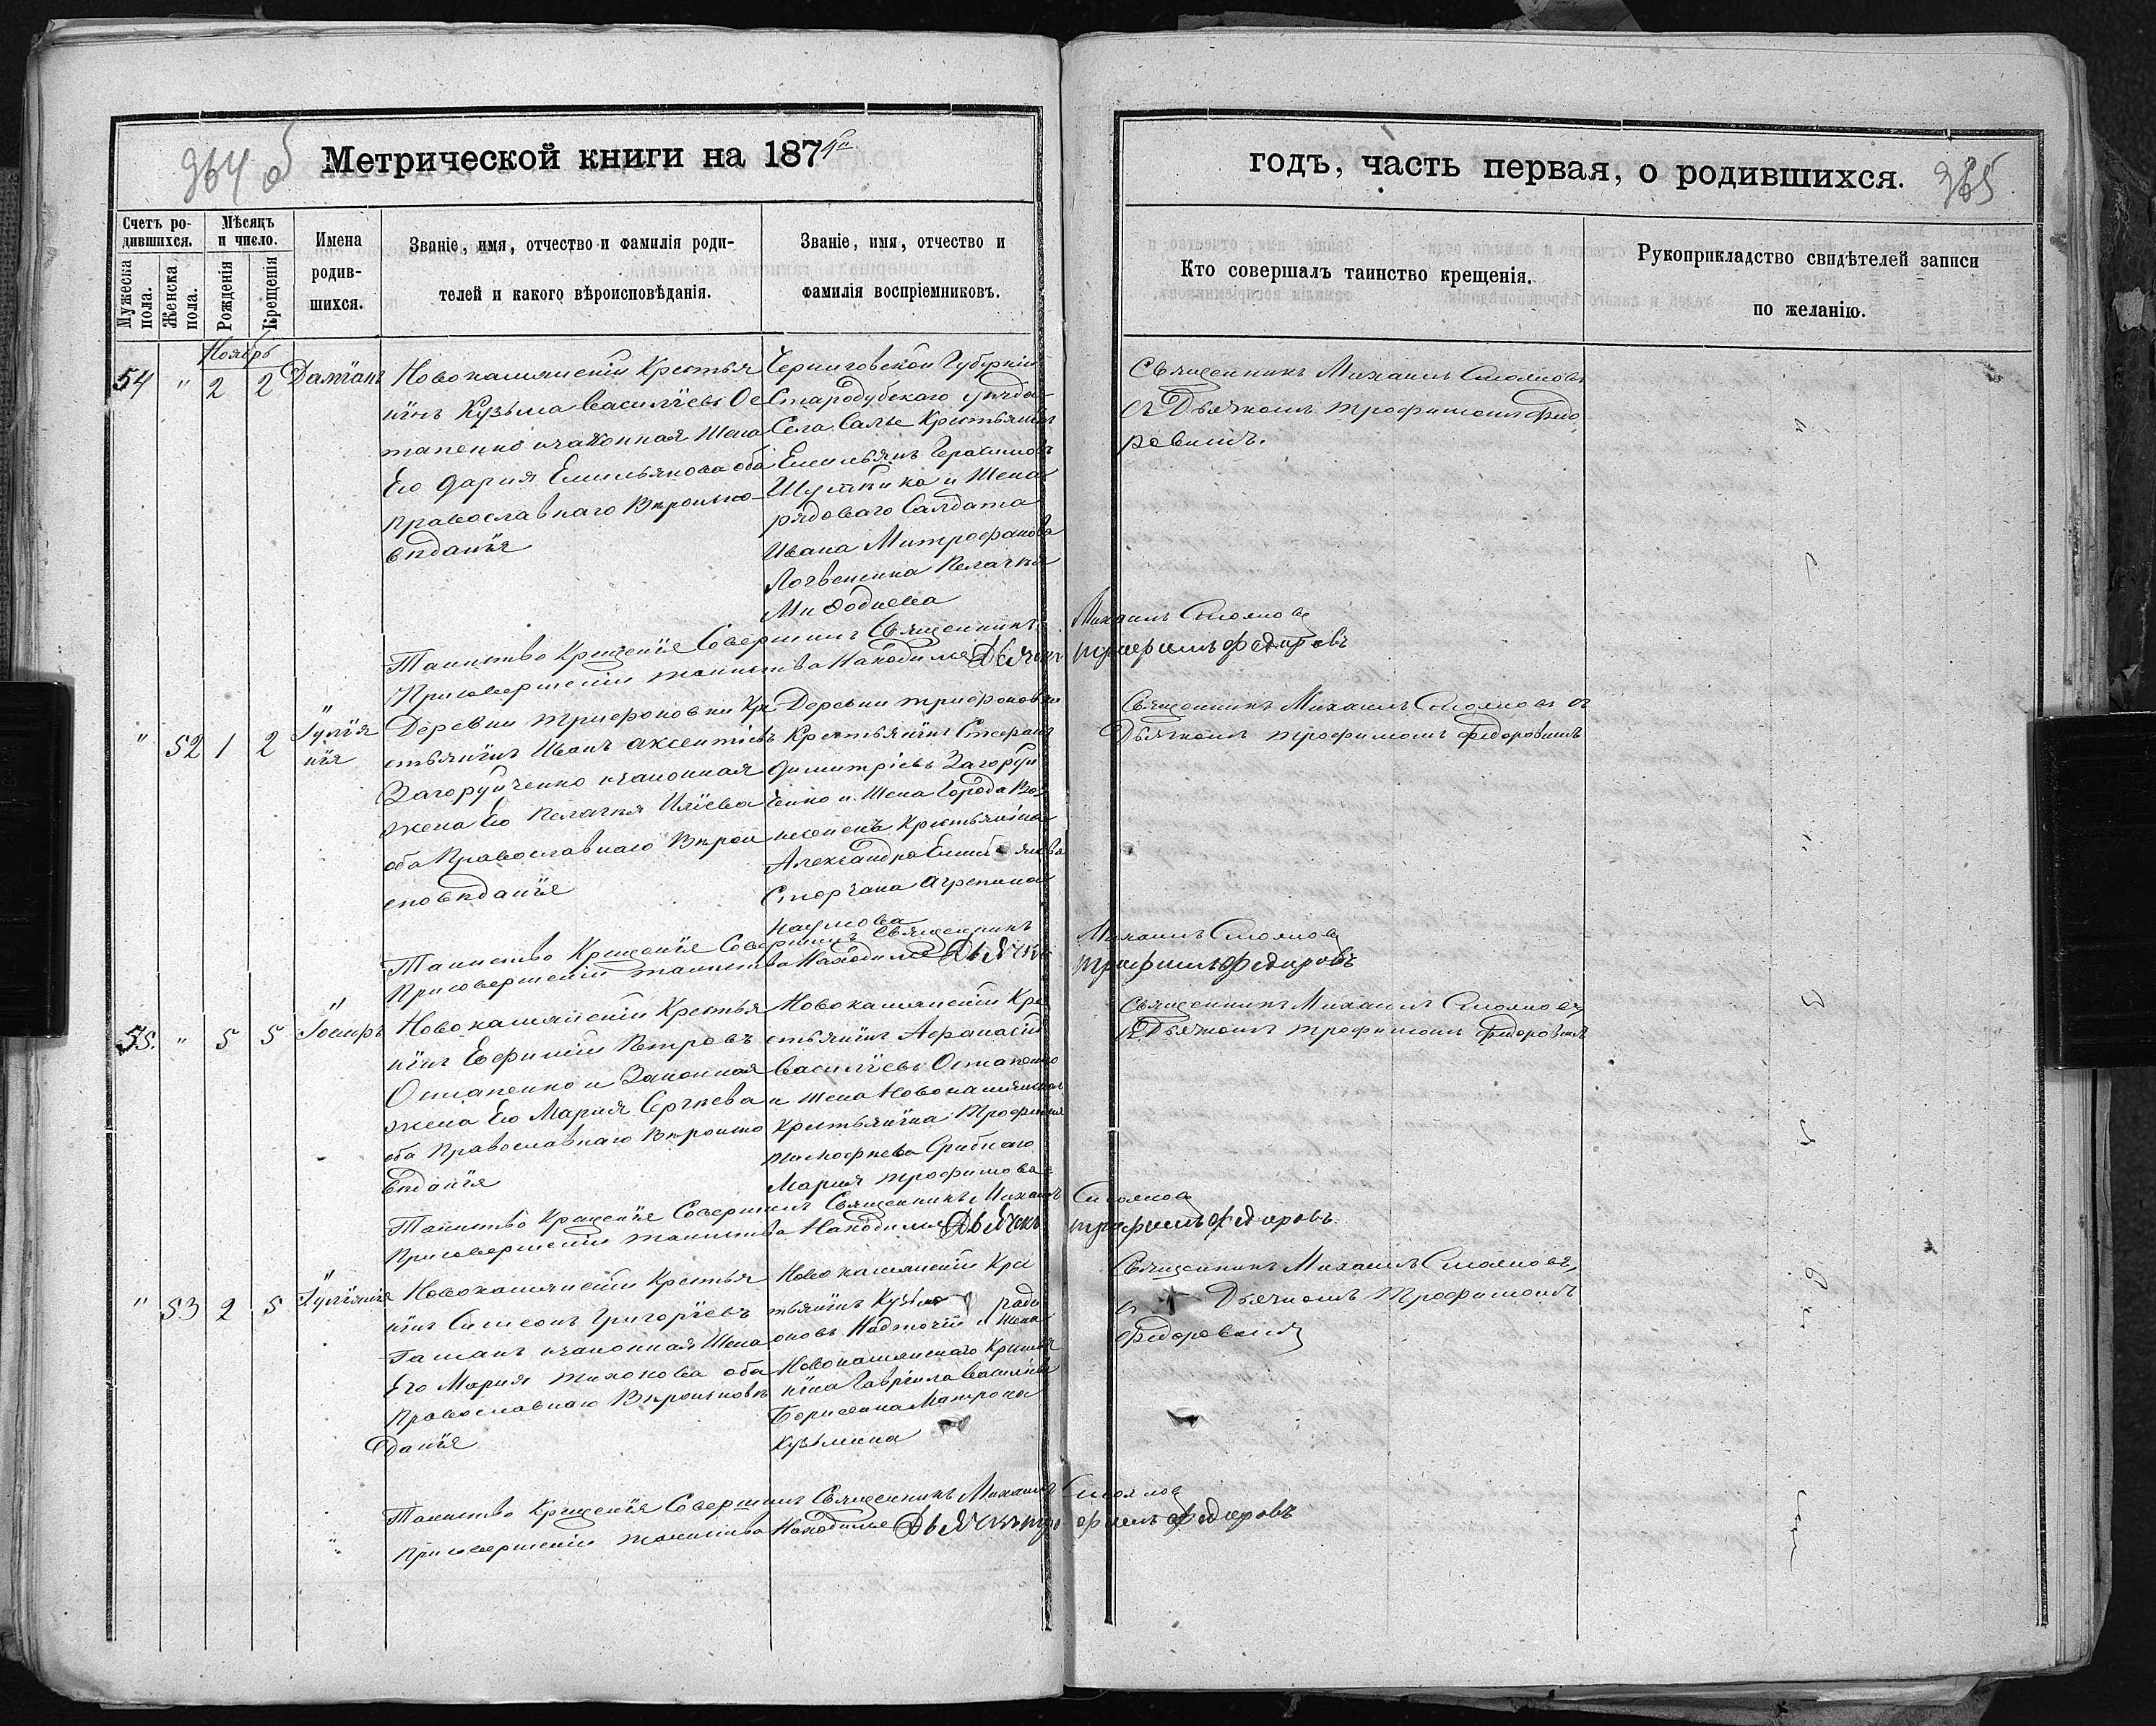 364 об
Метрической книги на 187
годъ, часть первая, о родившихся.
365
Счетъ ро-
дившихся.
Мужеска
пола.
Женска
пола.
Мѣсяцъ
и число.
Рожденія
Крещенія
Имена
родив-
шихся.
Званіе, имя, отчество и фамилія роди-
телей и какого вѣроисповѣданія.
Званіе, имя, отчество и
фамилія воспріемниковъ.
Кто совершалъ таинство крещенія.
Рукоприкладство свидѣтелей записи
по желанію.
Ноябрь
54 " 2 2 Даміанъ
Новокаменскій Крестья
нинъ Кузьма Василіевъ Ос
тапенко и законная Жена
Его Дарія Емильянова оба
православнаго Вѣроиспо
вѣданія
Черниговской Губерніи
Стародубскаго уѣзда
Села Крестьянинъ
Емельянъ Герасимовъ
и Жена
рядоваго Салдата
Ивана Митрофанова
Логвенена Пелагѣя
Миѳодіева
Священникъ Михаилъ
съ Дьячкомъ Трофимомъ Федо
ровымъ.
Таинство Крещенія Совершилъ Священникъ Михаилъ
При совершеніи таинства Находился Дьячокъ Трофимъ Федоровъ
" 52 1 2 Іуліа
нія
Деревни Трифоновки Кре
стьянинъ Иванъ Аксентіевъ
Загоруйченко и законная
жена Его Пелагѣя Иліева
оба Православнаго Вѣрои
сповѣданія
Деревни Трифоновки
Крестьянинъ Стефанъ
Димитріевъ Загоруй
ченко и Жена Города Воз
несенска Крестьянина
Александра Емильянова
Сторчака Агрепина
Наумова
Священникъ Михаилъ съ
Дьячкомъ Трофимомъ Федоровымъ
Таинство Крещенія Совершилъ Священникъ Михаилъ
При совершеніи таинства Находился Дьячокъ Трофимъ Федоровъ
55. " 5 5 Іосифъ
Новокаменскій Крестья
нинъ Евфимій Петровъ
Остапенко и Законная
жена Его Марія Сергѣева
оба Православнаго Вѣроиспо
вѣданія
Новокаменскій Кре
стьянинъ Афанасій
Василіевъ Остапенко
и Жена Новокаменскаго
Крестьянина Трофима
Тимофѣева Срибнаго
Марія Трофимова
Священникъ Михаилъ
съ Дьячкомъ Трофимомъ Федоровымъ
Таинство Крещенія Совершилъ Священникъ Михаилъ
При совершеніи таинства Находился Дьячокъ Трофимъ Федоровъ
" 53 2 5 Іуліанія
Новокаменскій Крестья
нинъ Симеонъ Григоріевъ
Гаманъ и законная Жена
Его Марія Тихонова оба
Православнаго Вѣроисповѣ
данія
Новокаменскій Кре
стьянинъ Кузьма Роди
оновъ Надточій и Жена
Новокаменскаго Крестья
нина Гавріила Василіева
Борисенка Матрона
Кузьмина
Священникъ Михаилъ
съ Дьячкомъ Трофимомъ
Федоровымъ
Таинство Крещенія Совершилъ Священникъ Михаилъ
При совершеніи таинства Находился Дьячокъ Трофимъ Федоровъ